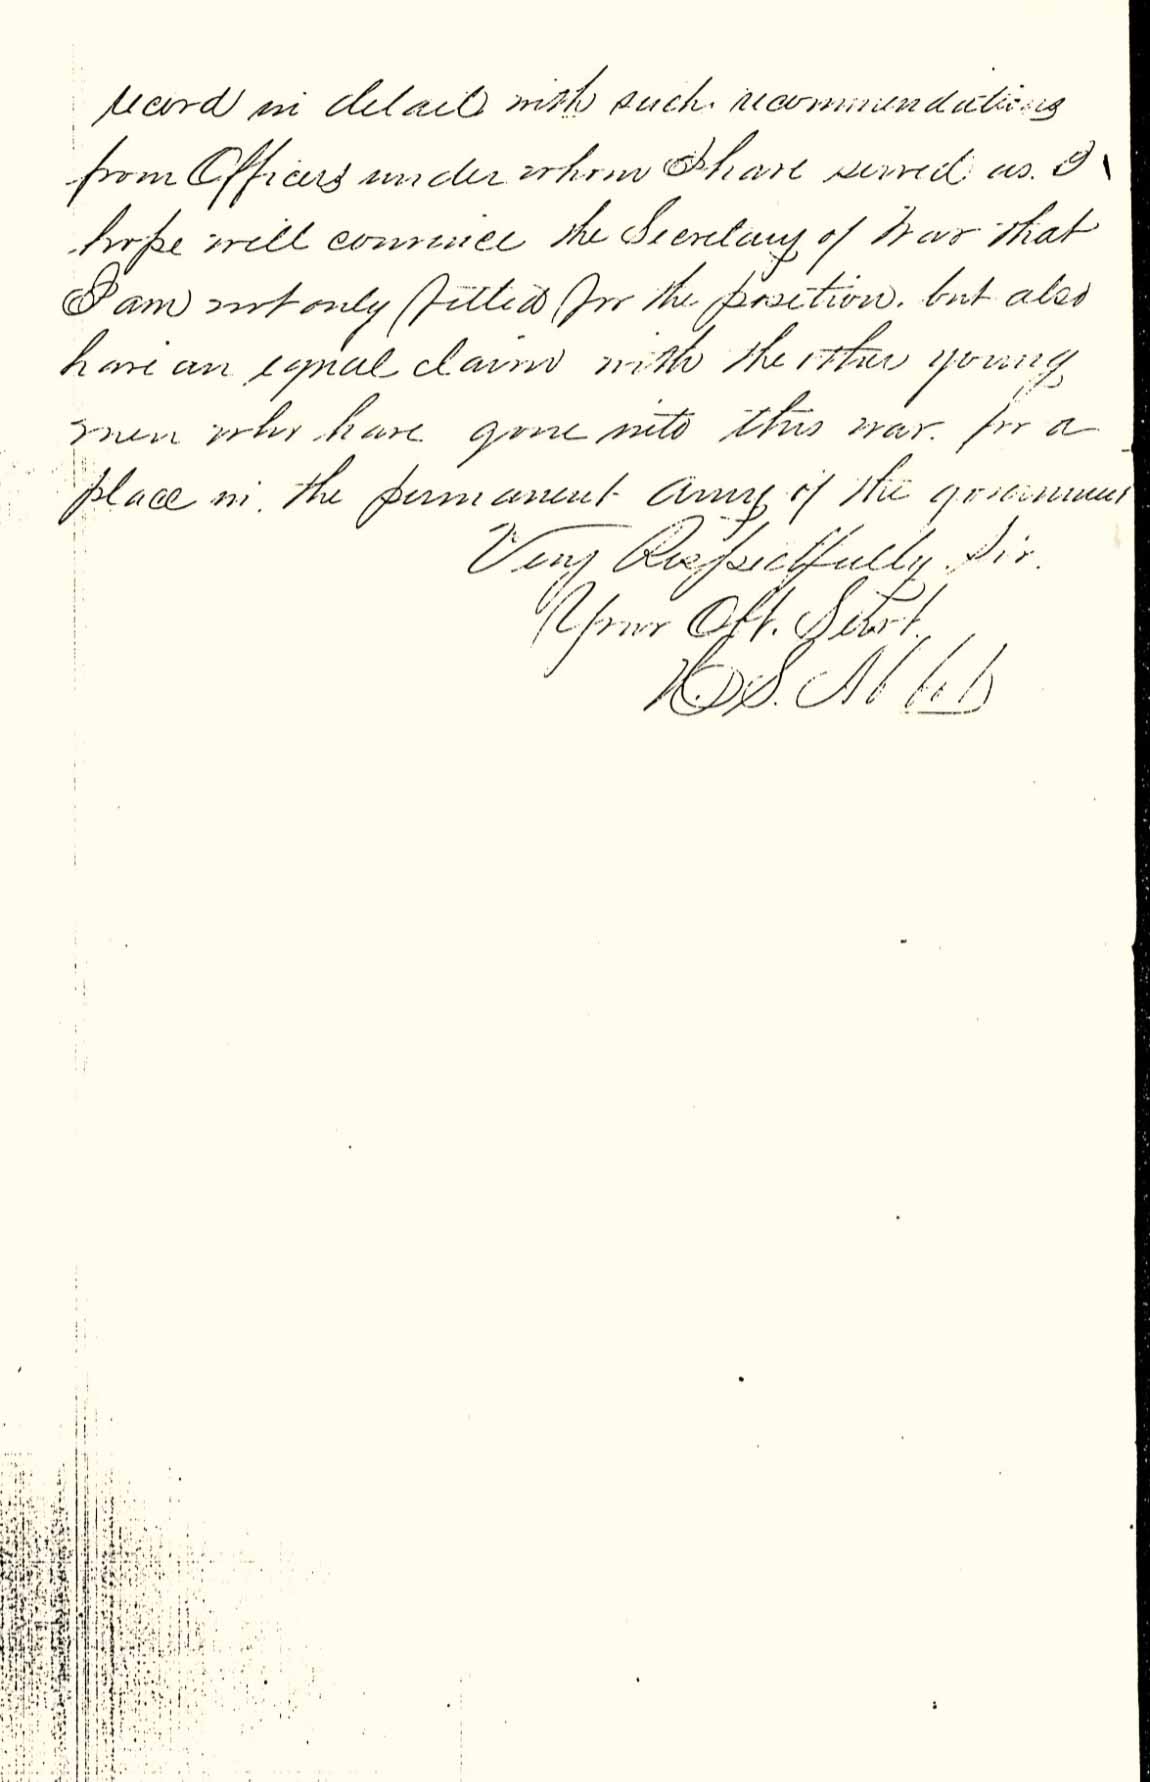 record in detail with such recommendations
from Officers under whom I have served as I
hope will convince the Secretary of War that
I am not only fitted for the position. but also
have an equal claim with the other young
men who have gone into this war. for a
place in the permanent Army of the government
Very Respectfully Sir.
Your Obt. Servt.
S. Abbott